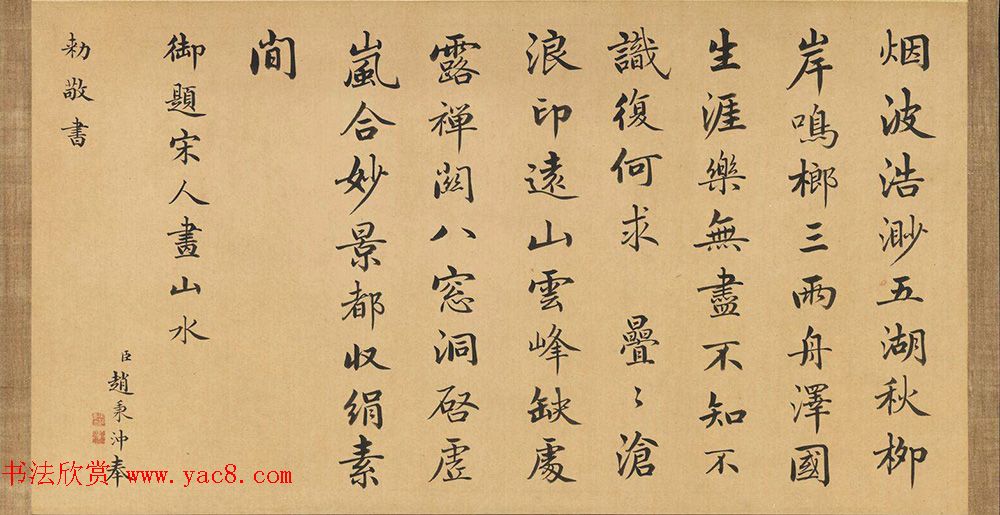 烟波浩渺五湖秋柳
岸鳴榔三兩舟澤國
生涯樂無盡不知不
識復何求　疊〻滄
浪印遠山雲峰缺處
露禪関八窓洞啓虚
嵐合妙景都収絹素
間
御題宋人畫山水
臣趙秉沖奉
勅敬書
书法欣赏www.yac8.com